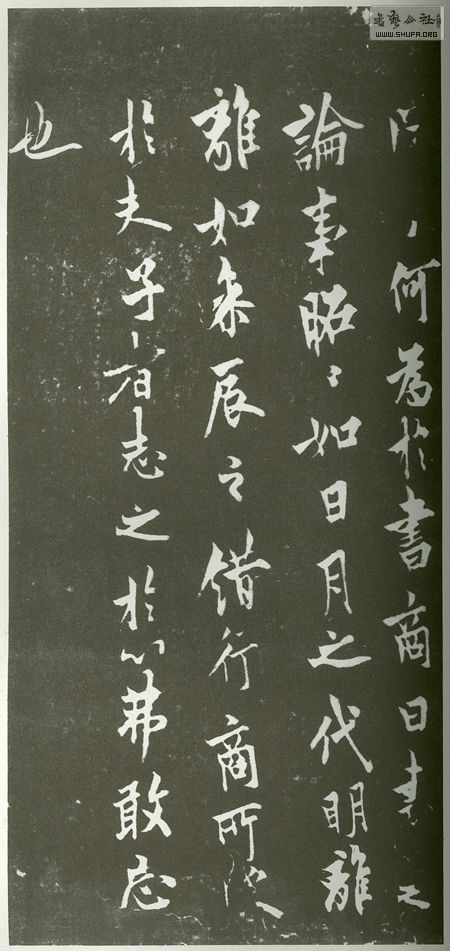 何為於書商曰書之
論事昭〻如日月之代明離
離如參辰之錯行商所
於夫子者志之於心弗敢忘
也
書藝公社
WWW.SHUFA.ORG